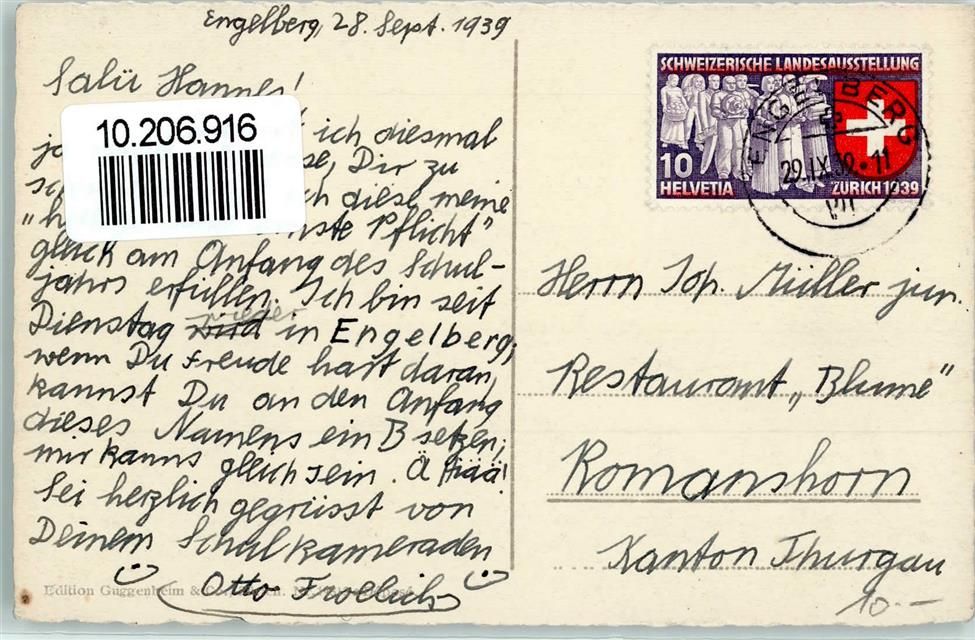 Engelberg, 28. Sept. 1939
Salü Hannes!
10.206.916
ich diesmal
Dir zu
diese meine
Pflicht"
gleich am Anfang des Schul-
jahrs erfüllen. Ich bin seit
wieder
Dienstag wird in Engelberg;
wenn Du Freude hast daran,
kannst Du an den Anfang
dieses Namens ein B setzen;
mir kanns gleich sein.
Sei herzlich gegrüsst von
Deinem Schulkameraden
Otto Froelich
Edition Guggenheim &
SCHWEIZERISCHE LANDESAUSSTELLUNG
10
HELVETIA
ZÜRICH 1939
ENGELBERG
29.IX.39.11
VII
Herrn Joh. Müller jun.
Restaurant „Blume"
Romanshorn
Kanton Thurgau
10.-